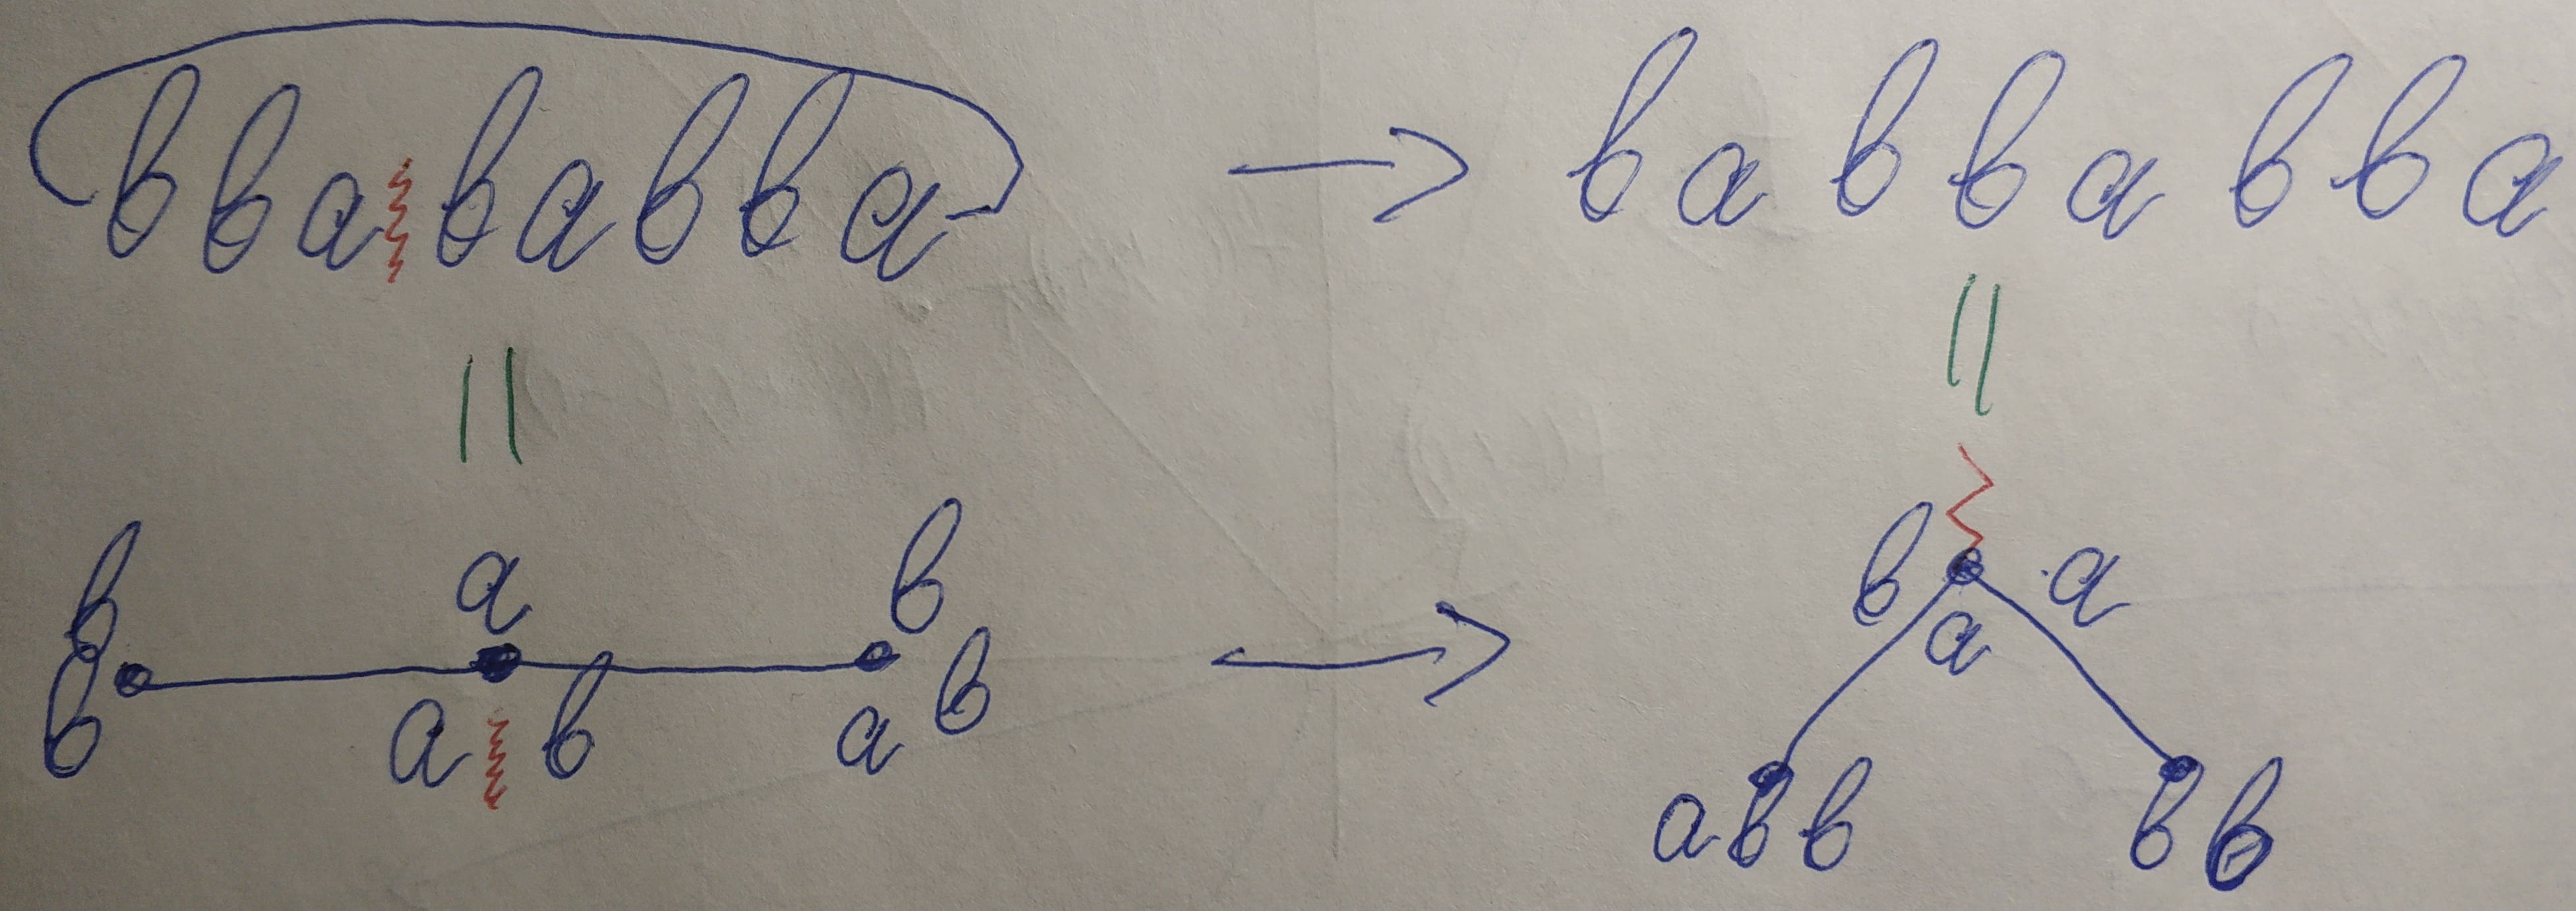 bbabaabba → babbabba
b a b b a
b a b a b → b a a
abb bb